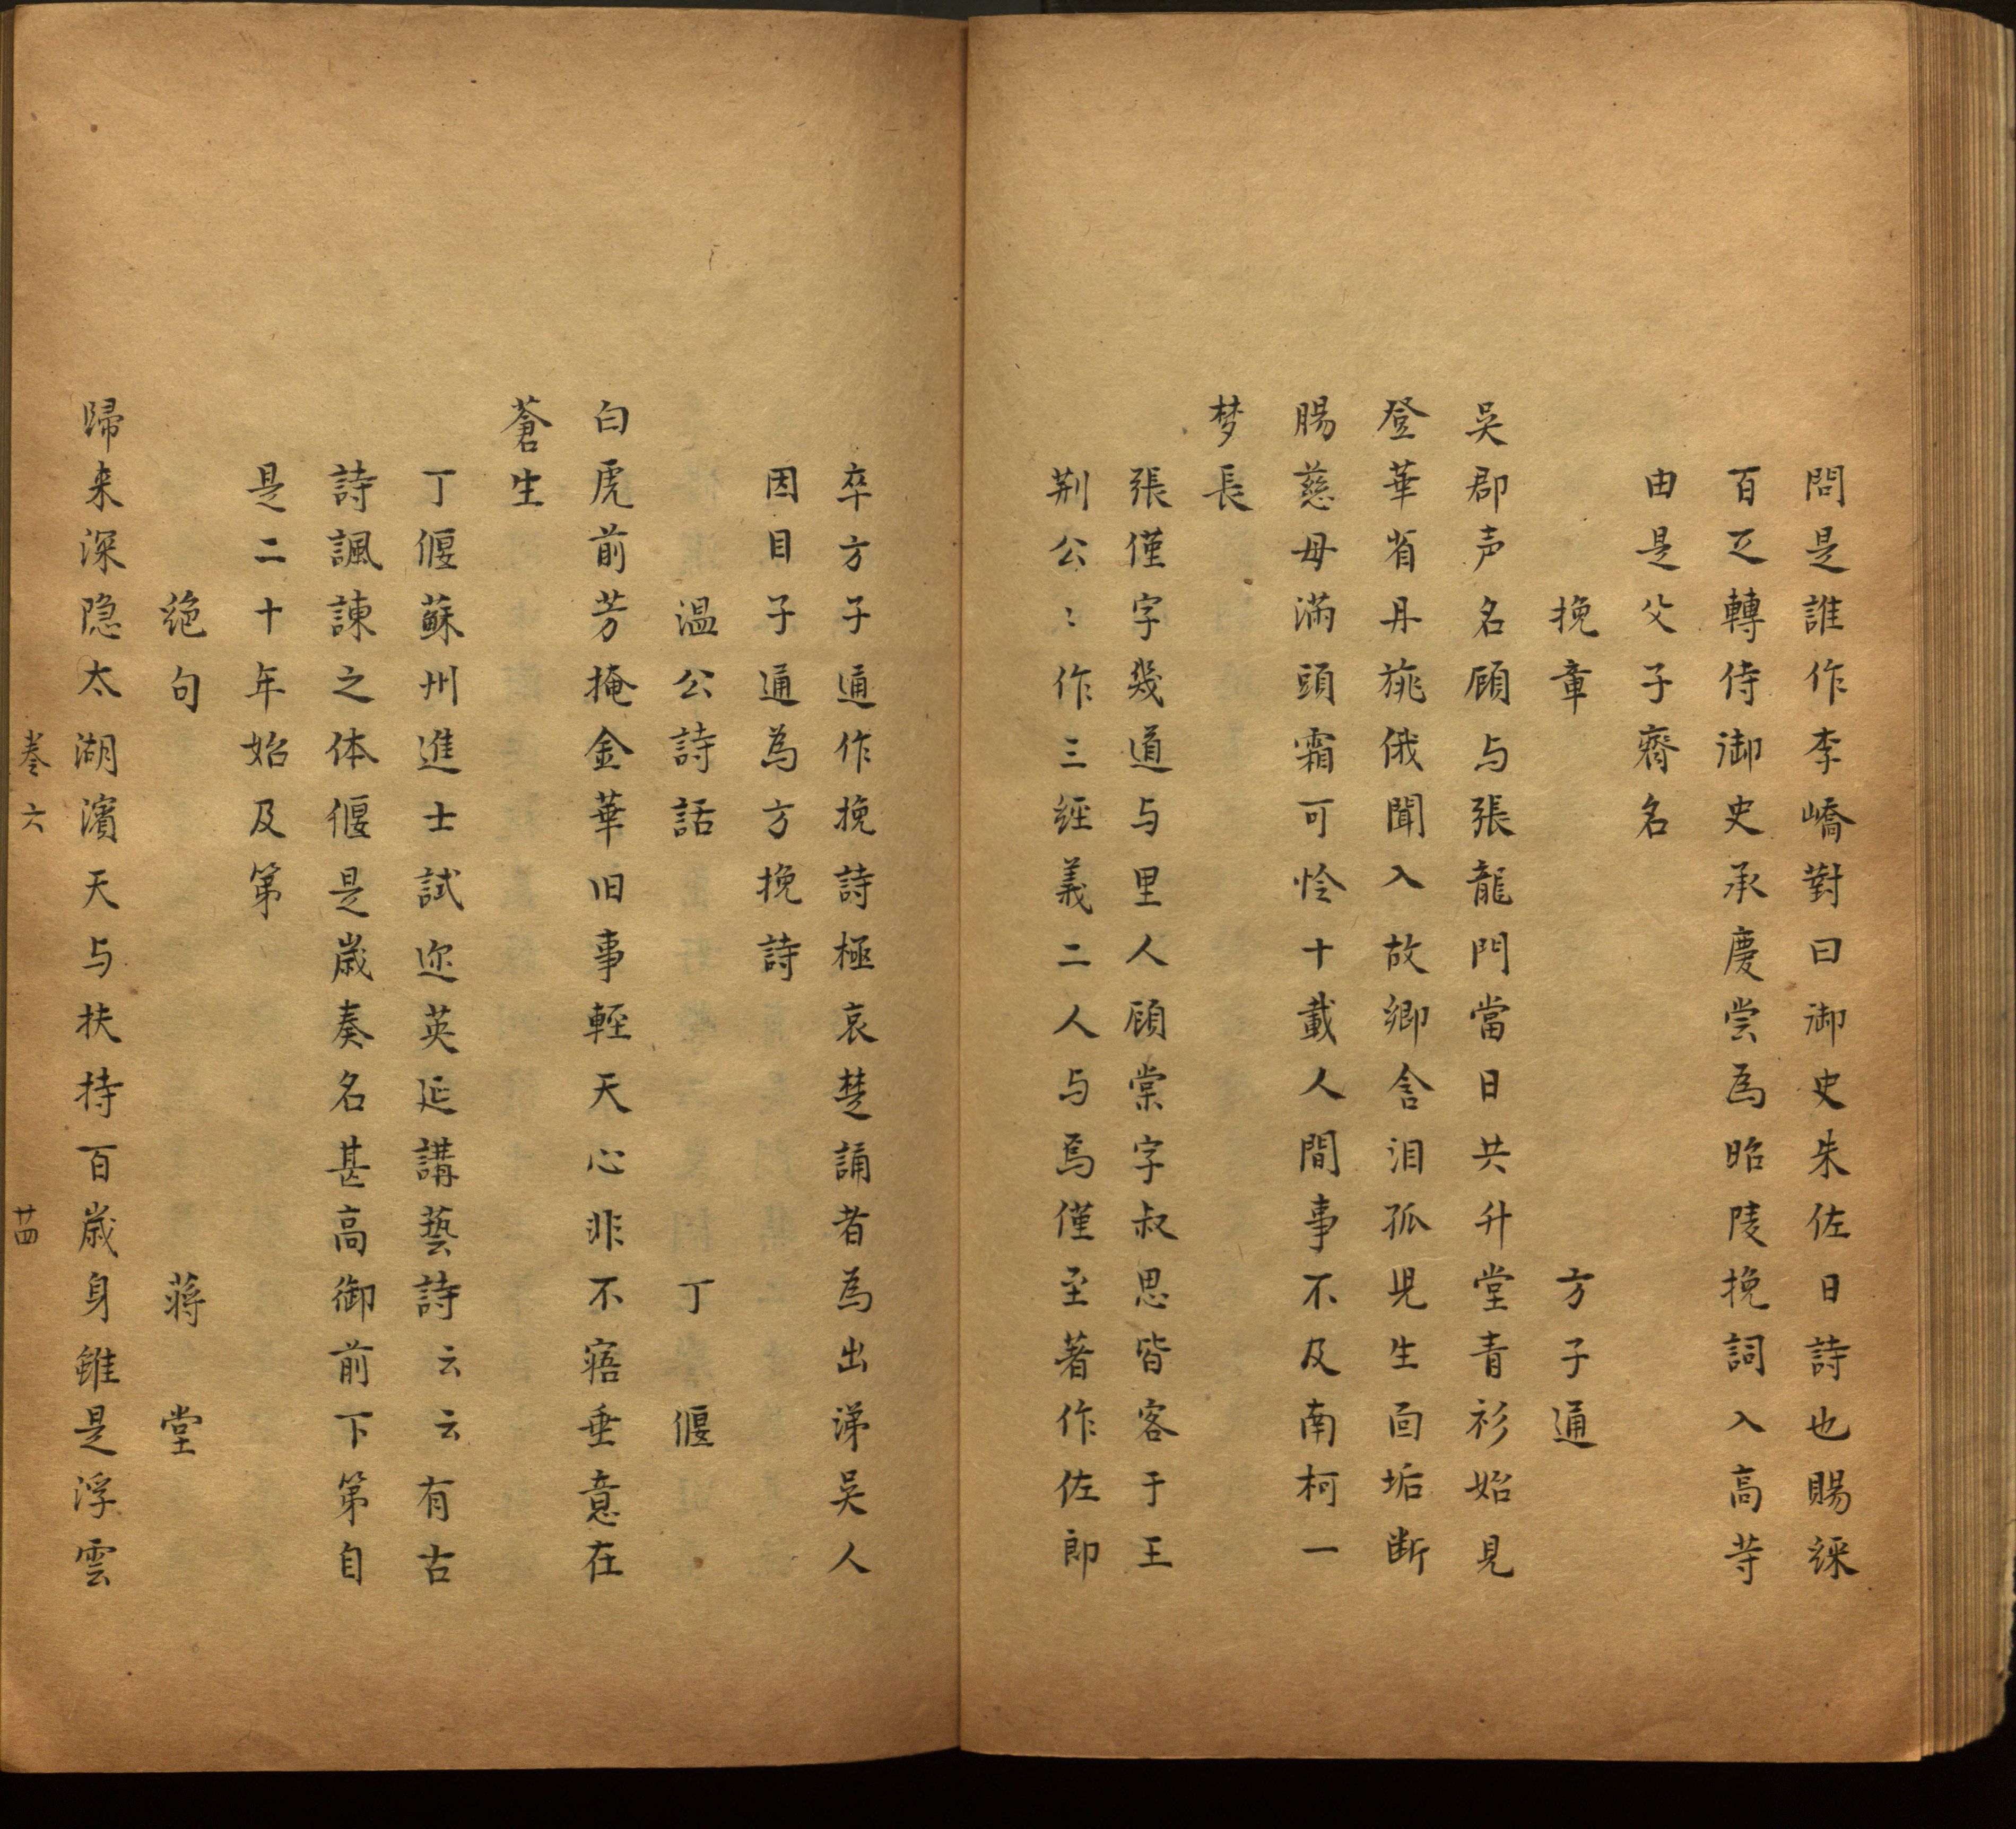 問是誰作李嶠對曰御史朱佐日詩也賜綵
百疋轉侍御史承慶嘗為昭陵挽詞入高等
由是父子齊名
挽章 方子通
吳郡声名顧与張龍門當日共升堂青衫始見
登華省丹旐俄聞入故鄉含泪孤児生面垢断
腸慈母滿頭霜可怜十載人間事不及南柯一
梦長
張僅字幾道与里人顧棠字叔思皆客于王
荆公〻作三經義二人与焉僅至著作佐郎
卒方子通作挽詩極哀楚誦者為出涕吴人
因目子通為方挽詩
温公詩話 丁偃
白虎前芳掩金華旧事輕天心非不寤垂意在
蒼生
丁偃蘇州進士試迩英延講藝詩云云有古
詩諷諫之体偃是歲奏名甚高御前下第自
是二十年始及第
絕句 蒋堂
歸来深隐太湖濱天与扶持百歲身雖是浮雲
卷六 廿四